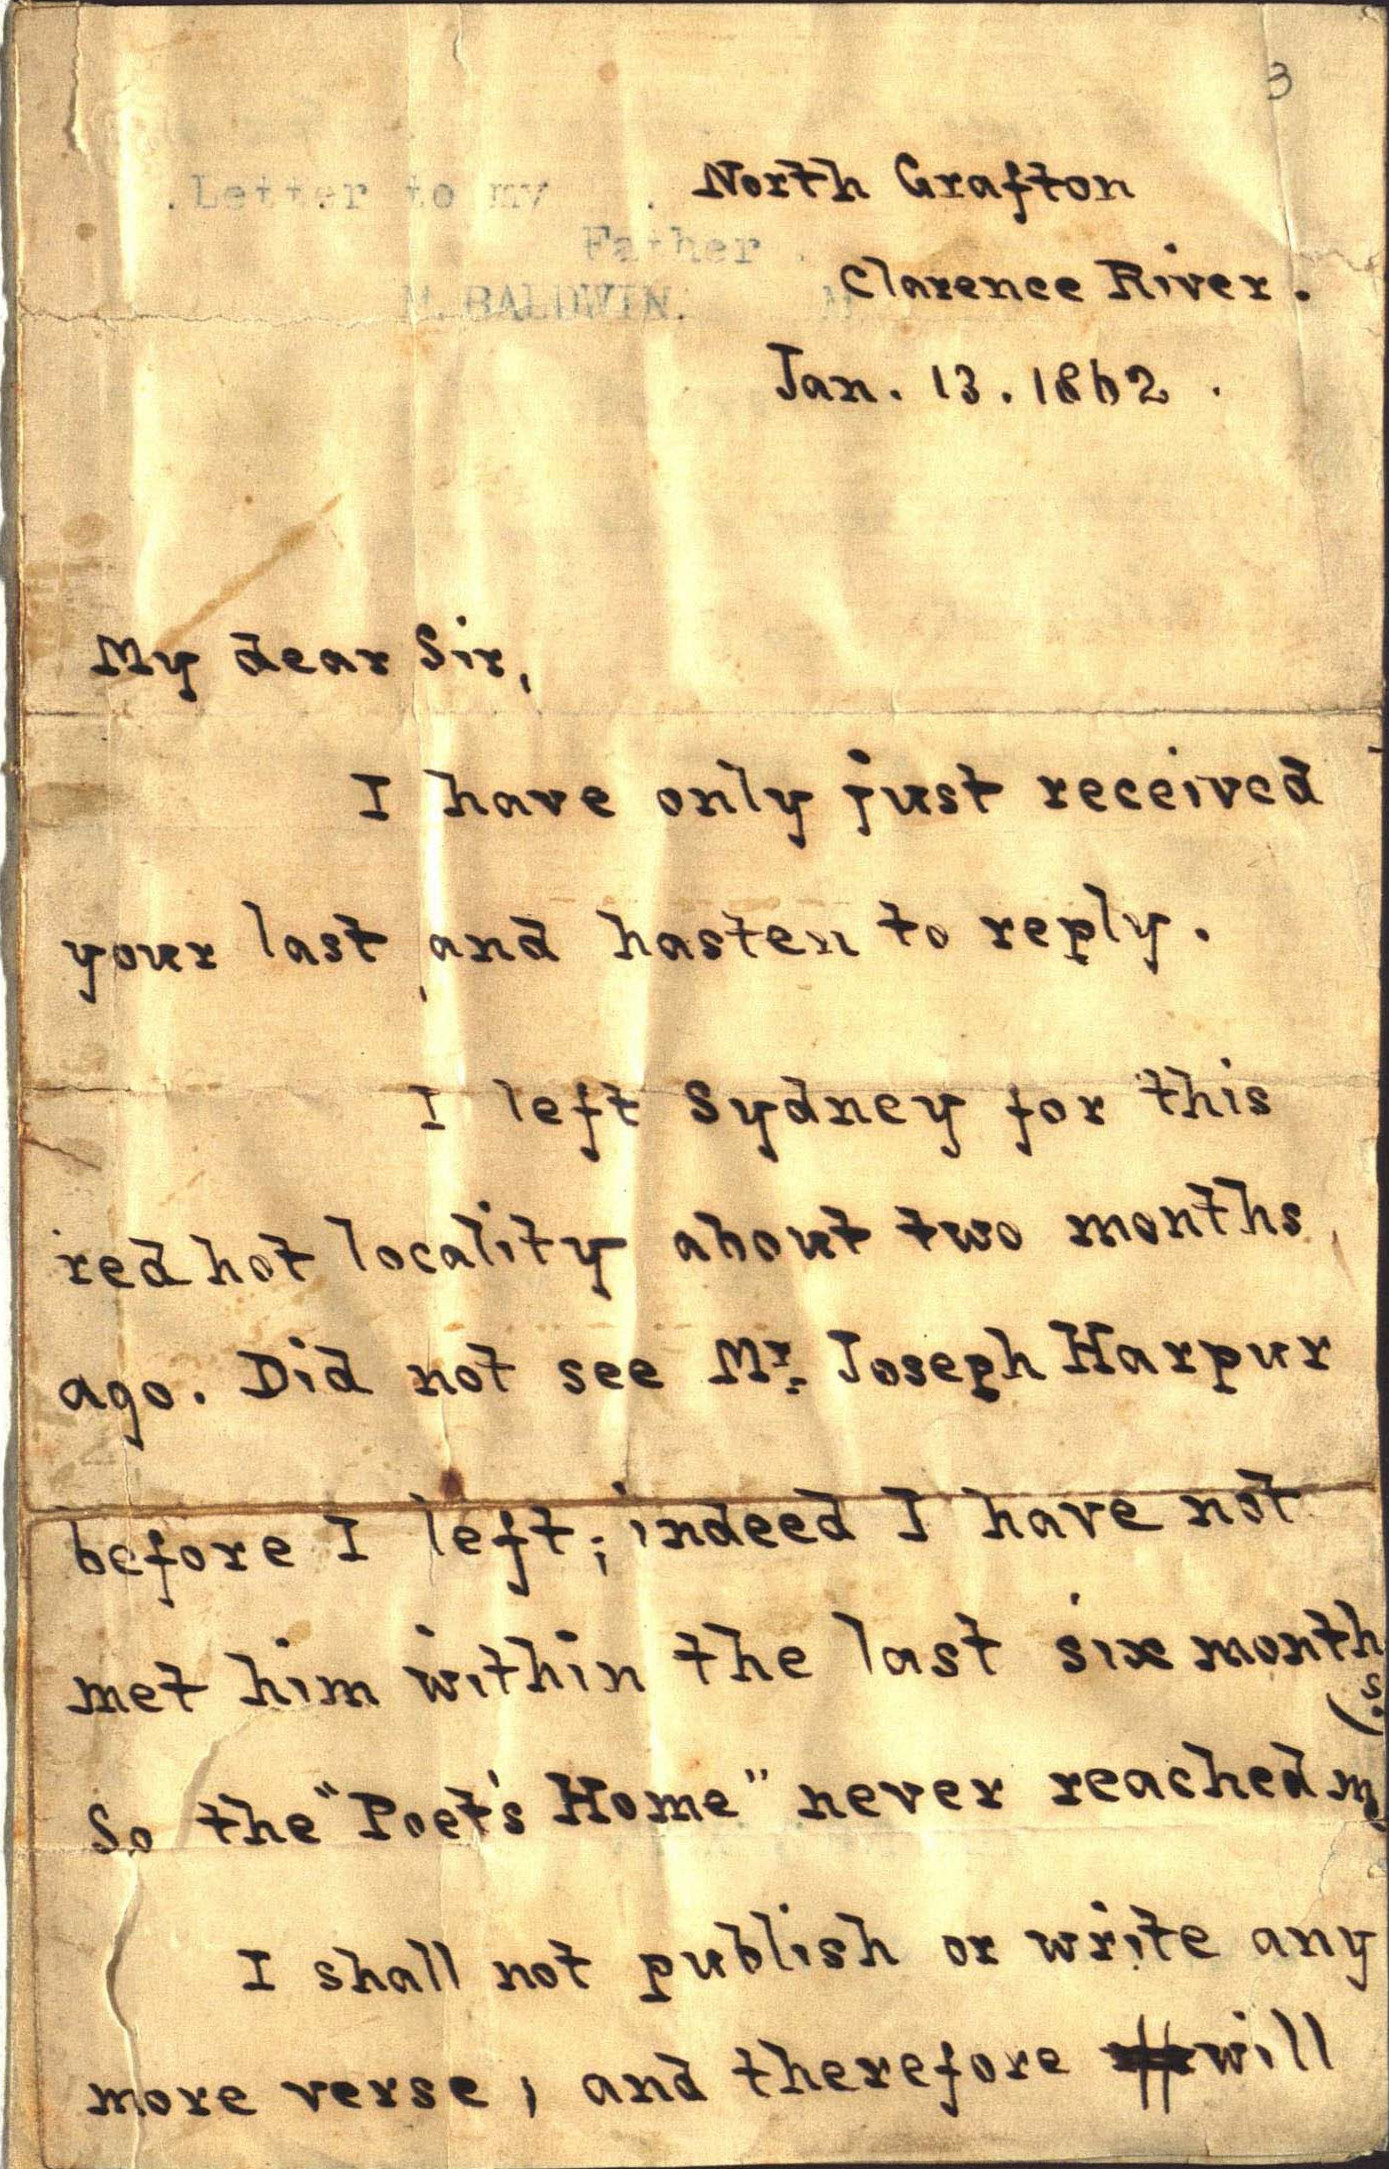 3
.Letter to my .
Father .
M. BALDWIN.
North Grafton
Clarence River.
Jan. 13. 1862.
My dear Sir,
I have only just received
your last, and hasten to reply.
I left Sydney for this
red hot locality about two months
ago. Did not see Mr. Joseph Harpur
before I left; indeed I have not
met him within the last six month
(s.
So the "Poet's Home" never reached me
I shall not publish or write any
more verse; and therefore will